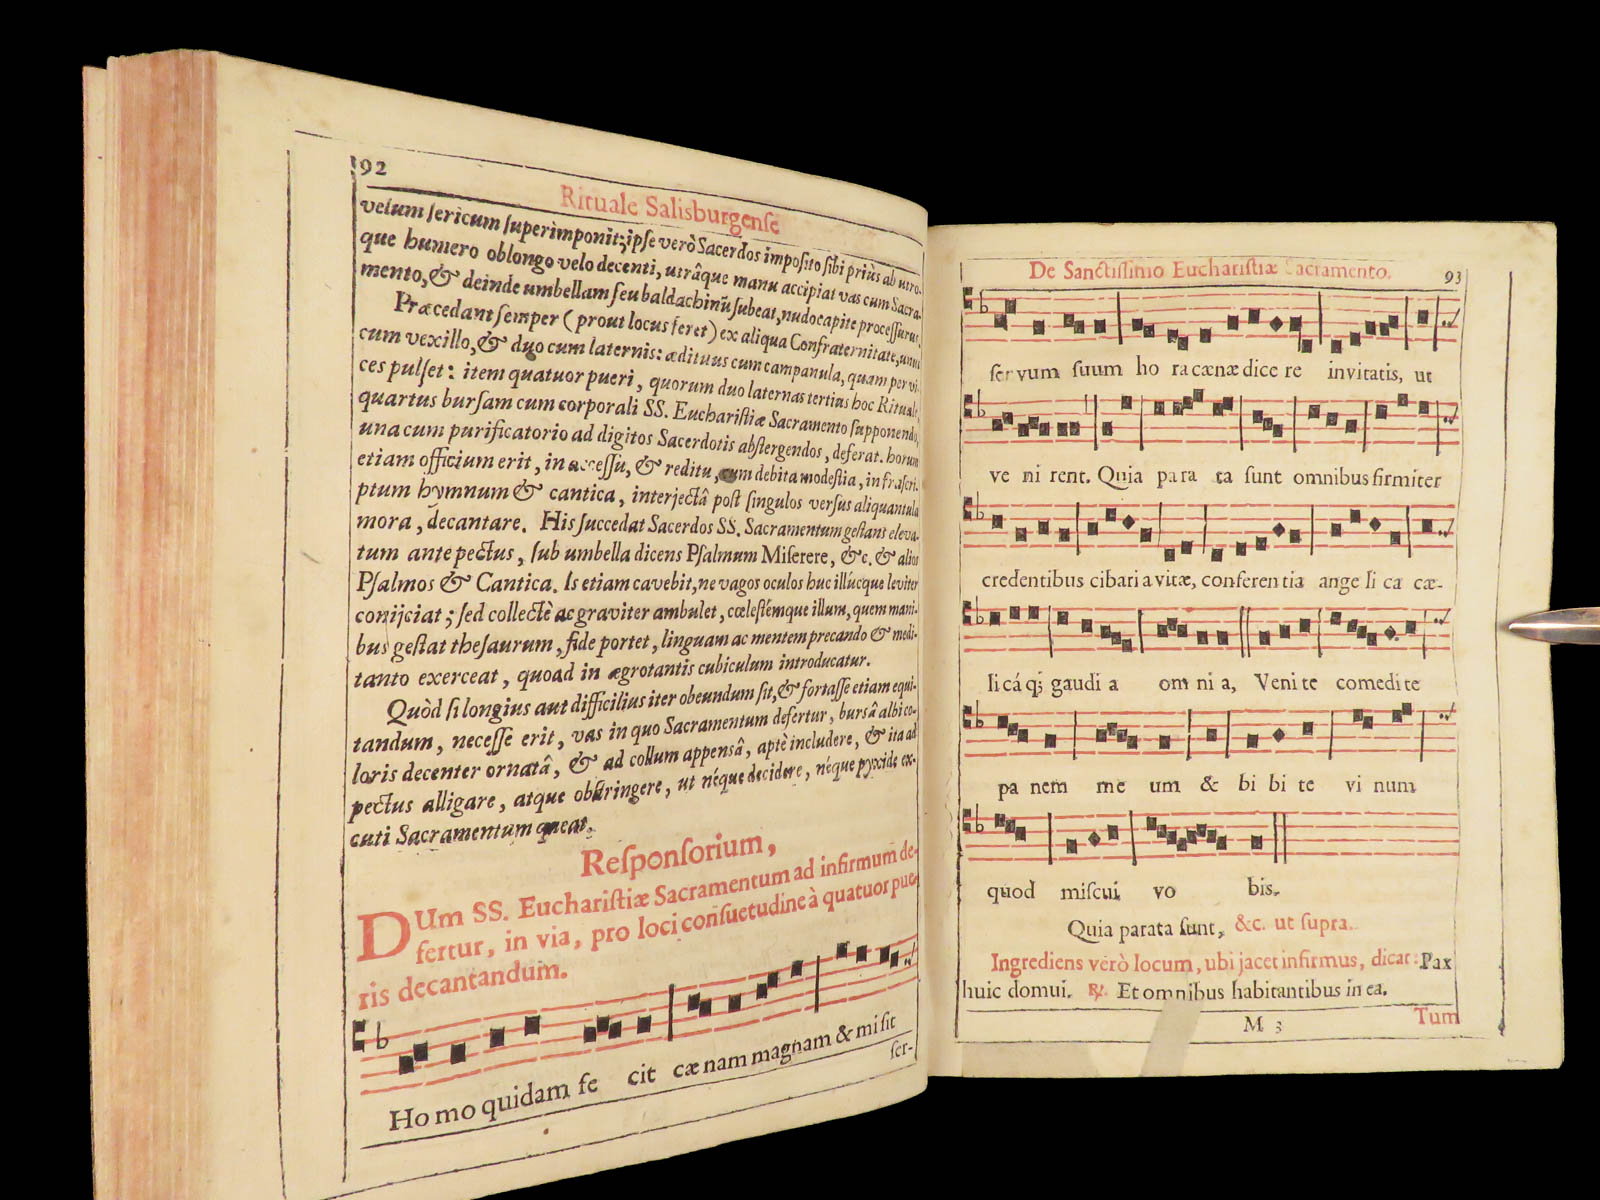 92
Rituale Salisburgenſe
velum ſericum ſuperimponit; ipſe verò Sacerdos impoſito ſibi priùs ab utro-
que humero oblongo velo decenti, utrâque manu accipiat vas cum Sacra-
mento, & deinde umbellam ſeu baldachinũ ſubeat, nudo capite proceſſurus.
Præcedant ſemper (prout locus feret) ex aliqua Confraternitate, unus
cum vexillo, & duo cum laternis: ædituus cum campanula, quam per vi-
ces pulſet: item quatuor pueri, quorum duo laternas tertius hoc Rituale,
quartus burſam cum corporali SS. Euchariſtiæ Sacramento ſupponendo,
una cum purificatorio ad digitos Sacerdotis abſtergendos, deferat. horum
etiam officium erit, in acceſſu, & reditu, cum debita modeſtia, infraſcri-
ptum hymnum & cantica, interjectâ poſt ſingulos verſus aliquantula
mora, decantare. His ſuccedat Sacerdos SS. Sacramentum geſtans eleva-
tum ante pectus, ſub umbella dicens Pſalmum Miſerere, &c. & alios
Pſalmos & Cantica. Is etiam cavebit, ne vagos oculos huc illúcque leviter
conijciat; ſed collectè ac graviter ambulet, cœleſtémque illum, quem mani-
bus geſtat theſaurum, fide portet, linguam ac mentem precando & medi-
tanto exerceat, quoad in ægrotantis cubiculum introducatur.
Quòd ſi longius aut difficilius iter obeundum ſit, & fortaſſe etiam equi-
tandum, neceſſe erit, vas in quo Sacramentum defertur, bursâ albi co-
loris decenter ornatâ, & ad collum appensâ, aptè includere, & ita ad
pectus alligare, atque obſtringere, ut néque decidere, néque pyxide ex-
cuti Sacramentum queat.
Reſponſorium,
DUm SS. Euchariſtiæ Sacramentum ad infirmum de-
fertur, in via, pro loci conſuetudine à quatuor pue-
ris decantandum.
Ho mo quidam fe cit cæ nam magnam & mi ſit
ſer-
De Sanctiſſimo Euchariſtiæ Sacramento.
93
ſer vum ſuum ho ra cænæ dice re invitatis, ut
ve ni rent. Quia pa ra ta ſunt omnibus firmiter
credentibus cibari a vitæ, conferen tia ange li ca cæ-
li cá q; gaudi a om ni a, Veni te comedi te
pa nem me um & bi bi te vi num
quod miſcui vo bis.
Quia parata ſunt, &c. ut ſupra.
Ingrediens verò locum, ubi jacet infirmus, dicat: Pax
huic domui. ℟. Et omnibus habitantibus in ea.
M 3
Tum